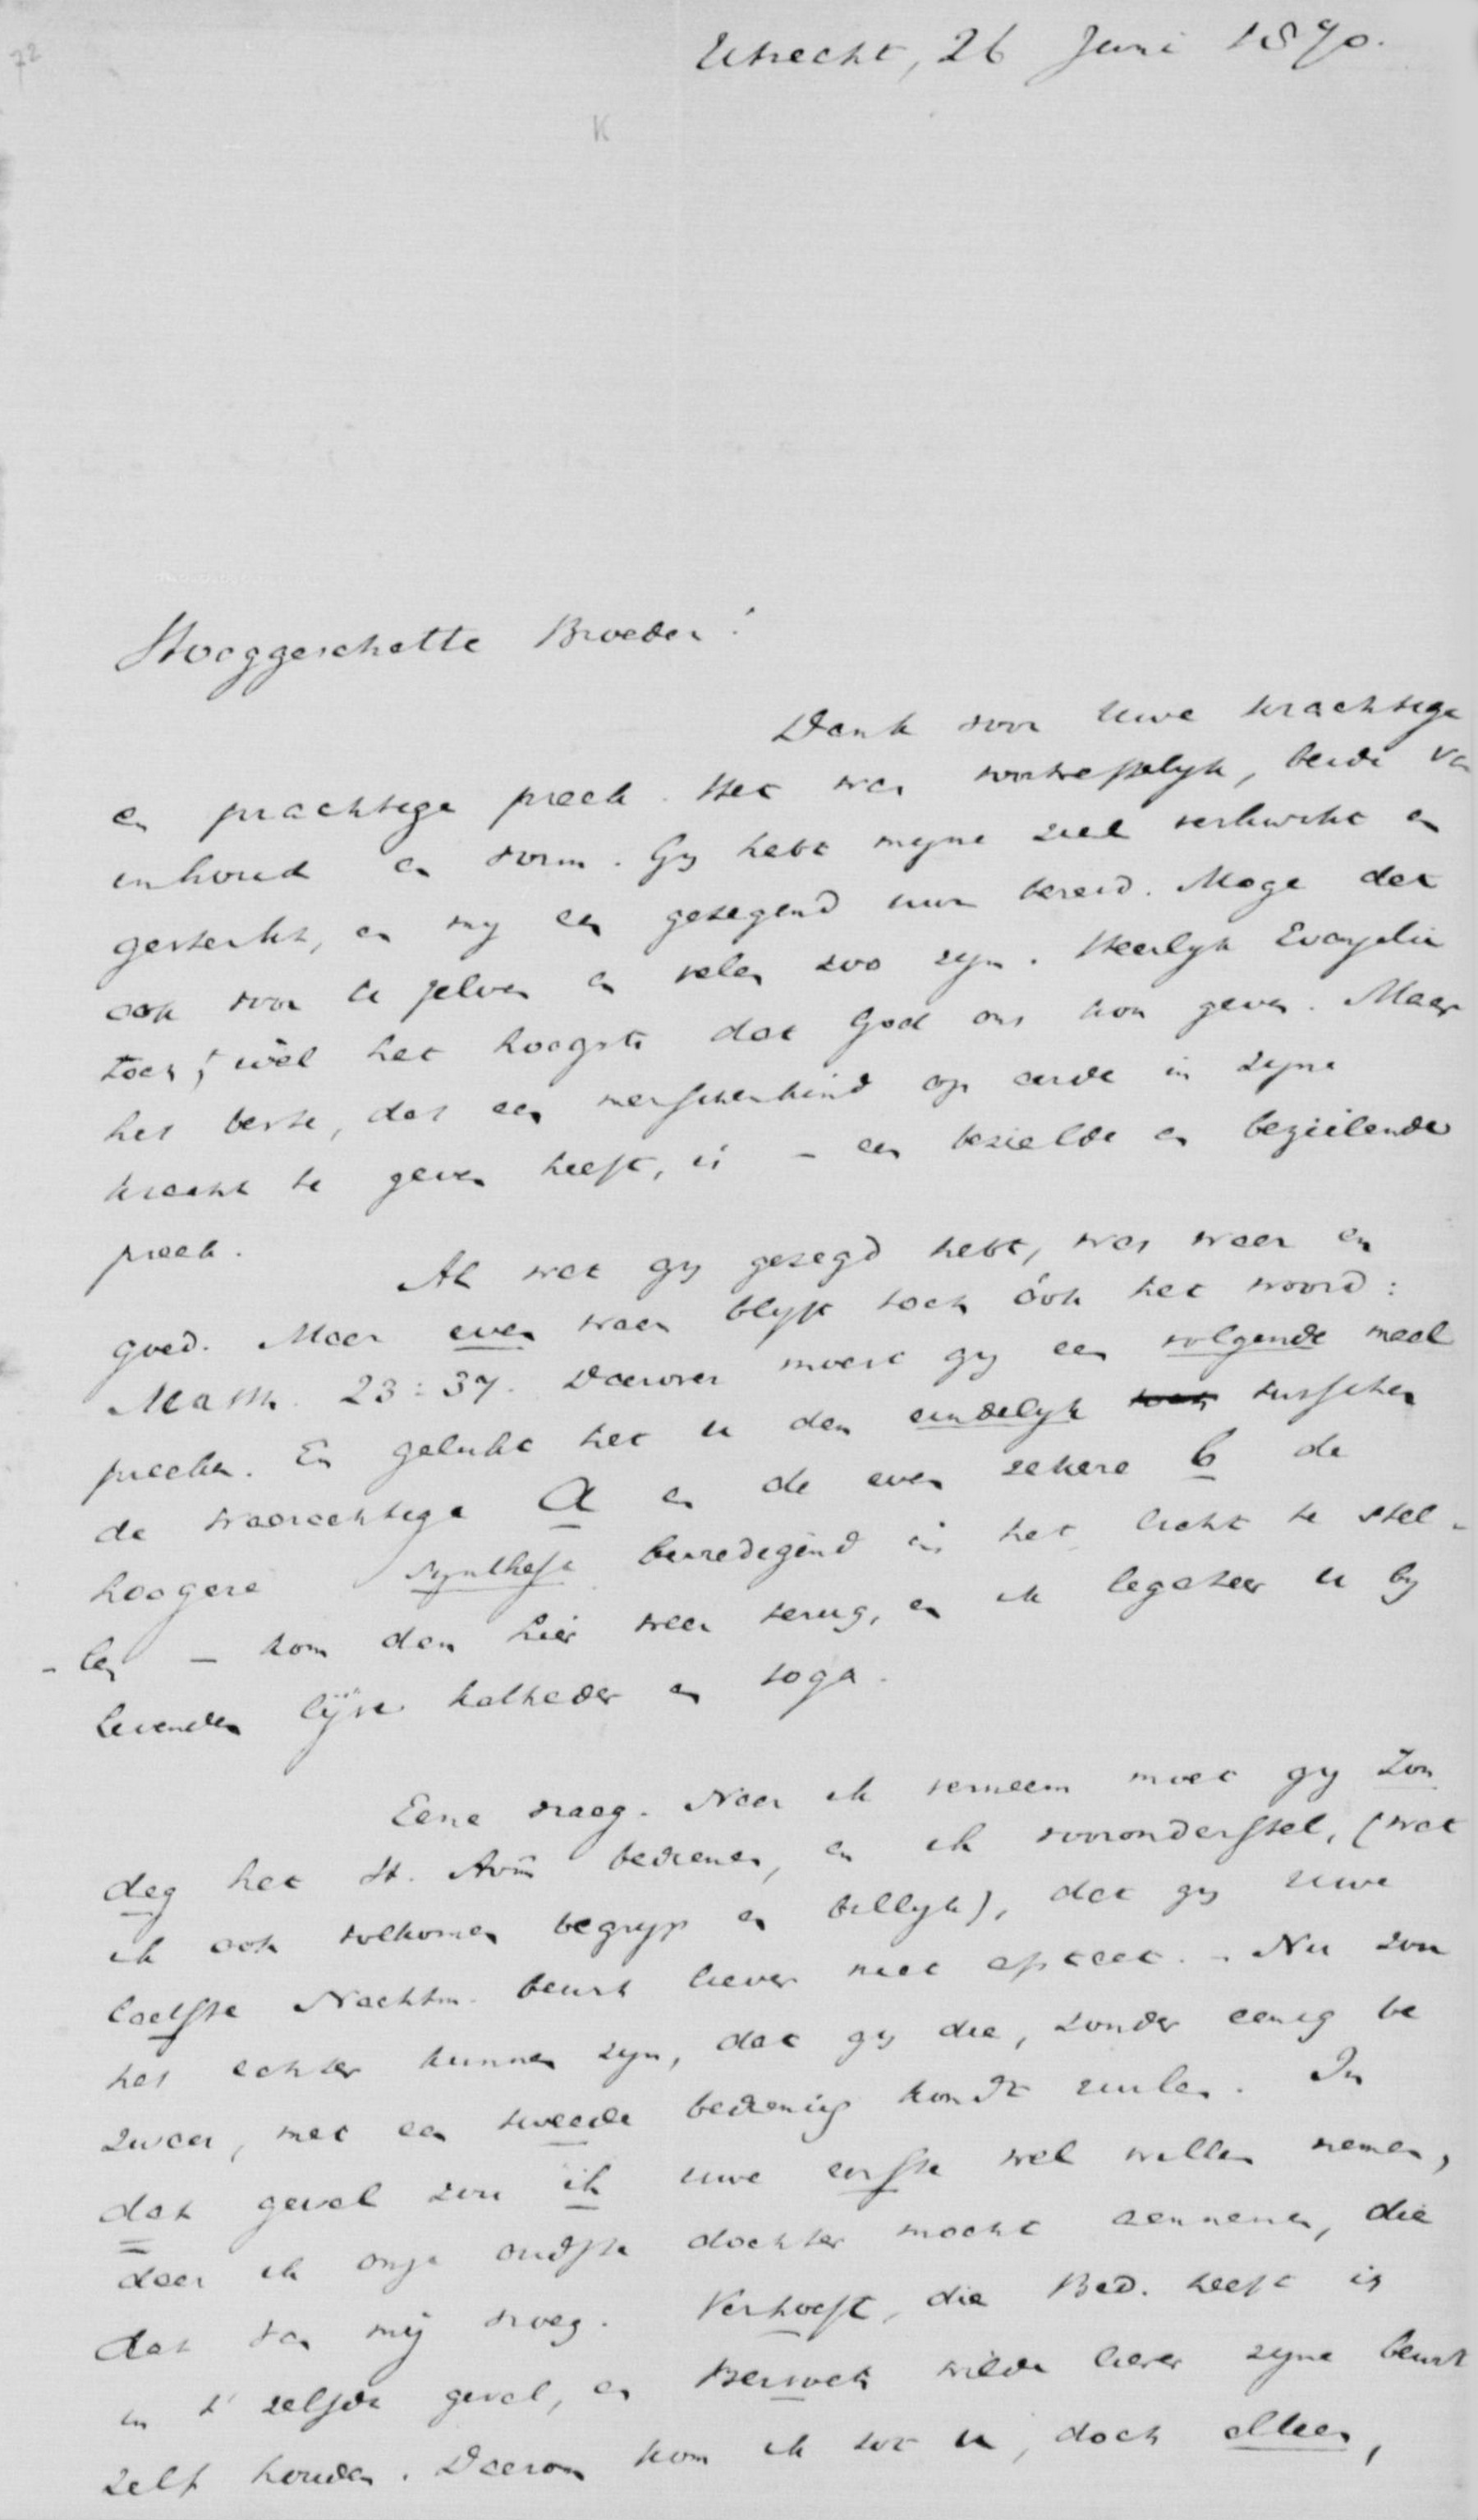 72
K
Utrecht, 26 Juni 1890.
Hooggeschatte Broeder!
Dank voor Uwe krachtige
en prachtige preek. Het was voortreffelyk, beide va
inhoud en vorm. Gy hebt myne ziel verkwikt en
gesterkt, en my een gezegend uur bereid. Moge dat
ook voor U zelven en velen zoo zyn. Heerlyk Evangelie
toch; wèl het hoogste dat God ons kon geven. Maar
het beste, dat een menschenkind op aarde in zyne
kracht te geven heeft, is - een bezielde en bezielende
preek.
Al wat gy gezegd hebt, was waar en
goed. Maar even waar blyft toch óók het woord:
Matth. 23:37. Daarover moest gy een volgende maal
preeken. En gelukt het u dan eindelyk tusschen
de waarachtige a en de even zekere b de
hoogere synthese bevredigend in het licht te stel-
-len - kom dan hier weer terug, en ik legateer u by
levenden lijve katheder en toga.
Eene vraag. Naar ik verneem moet gy Zon
dag het H. Avm bedienen, en ik vooronderstel, (wat
ik ook volkomen begryp en billyk), dat gy Uwe
laatste Nachtm. beurt liever niet afstaat. - Nu zou
het echter kunnen zyn, dat gy die, zonder eenig be
zwaar, met een tweede bediening kondt ruilen. In
dat geval zou ik uwe eerste wel willen nemen,
daar ik onze oudste dochter mocht aannemen, die
dat van mij vroeg. Verhoeff, die Bed. heeft is
in 't zelfde geval, en wilde liever zyne beurt
zelf houden. Daarom kom ik tot u, doch alleen,